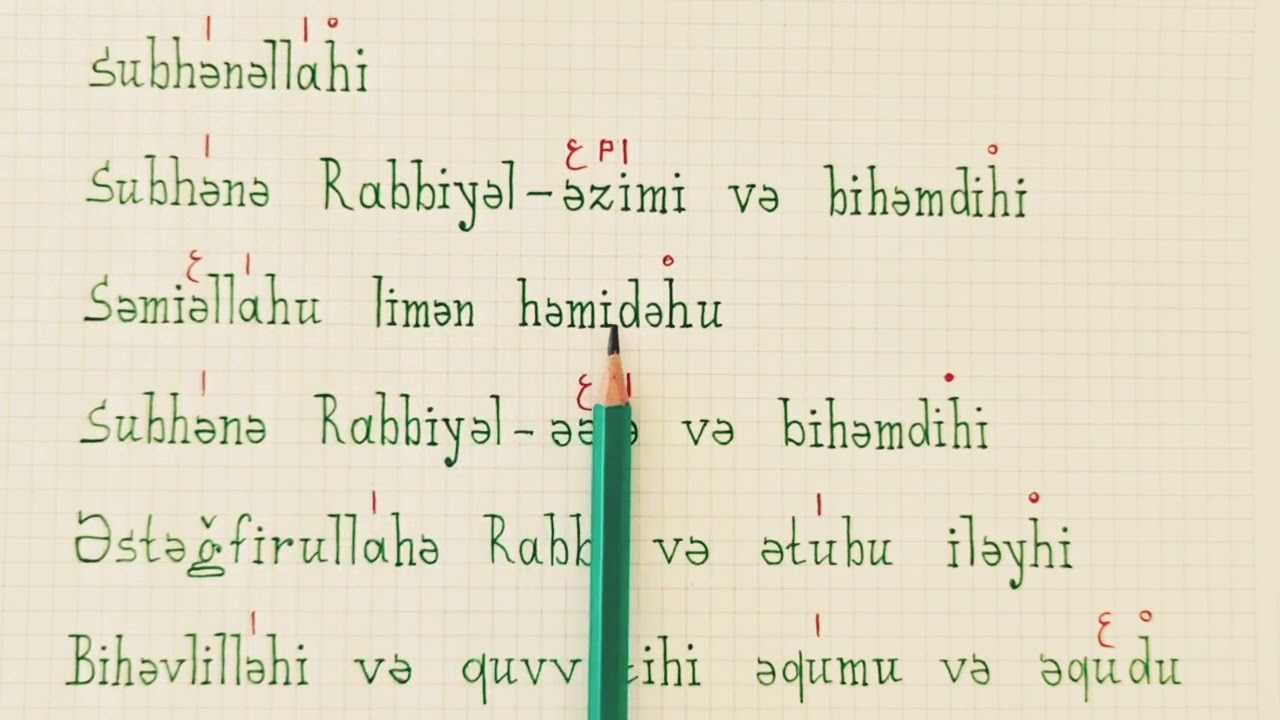 Subhənəllahi
Subhənə Rabbiyəl-əzimi və bihəmdihi
Səmiəllahu limən həmidəhu
Subhənə Rabbiyəl- və bihəmdihi
Əstəğfirullahə və ətubu iləyhi
Bihəvlilləhi və əqumu və əqudu